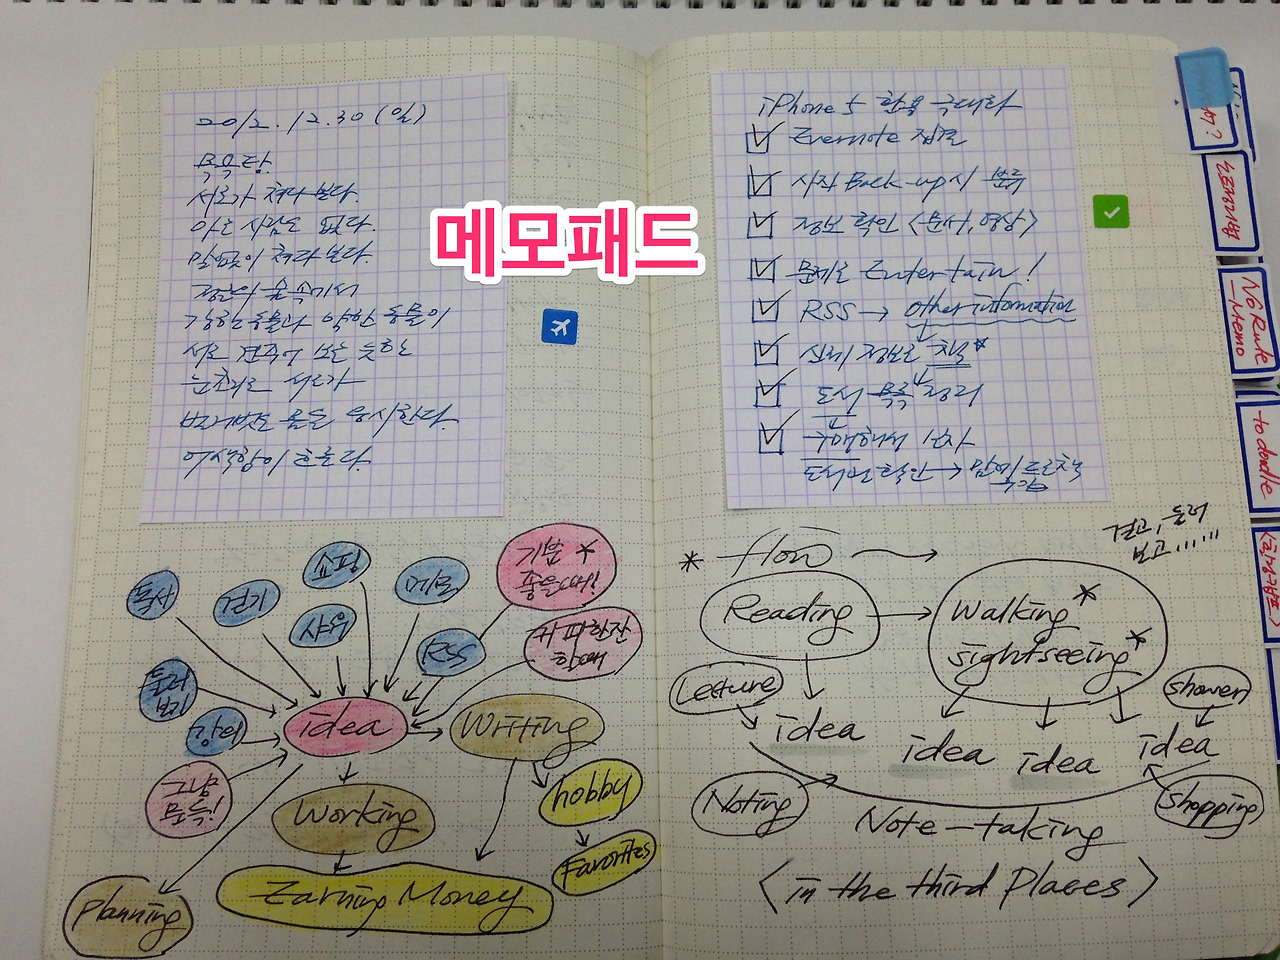 메모패드
2012.12.30 (일)
목욕탕.
서로가 쳐다 본다.
아는 사람은 없다.
말없이 쳐다 본다.
정글의 숲속에서
강한 동물과 약한 동물이
서로 견주어 보는 듯한
눈초리로 서로가
벌거벗은 몸을 응시한다.
어색함이 흐른다.
iPhone 5 활용 극대화
Evernote 집결
사진 Back-up시 분류
정보 확인 <문서, 영상>
문제는 Entertain!
RSS → other information
신뢰 정보는 책*
도서 목록 정리
구매해서 읽자
도서면 확인 →
독서
걷기
쇼핑
샤워
메모
RSS
기분 *
좋을때!
커피한잔
할때
둘러
보기
강의
그냥
문득!
idea
Writing
Working
hobby
Favorites
Earning Money
Planning
* flow
걷고, 둘러
보고......
Reading
Walking*
sightseeing*
Lecture
shower
idea
idea
idea
idea
Noting
shopping
Note-taking
<in the third Places>
No Rule
-Memo
to doodle